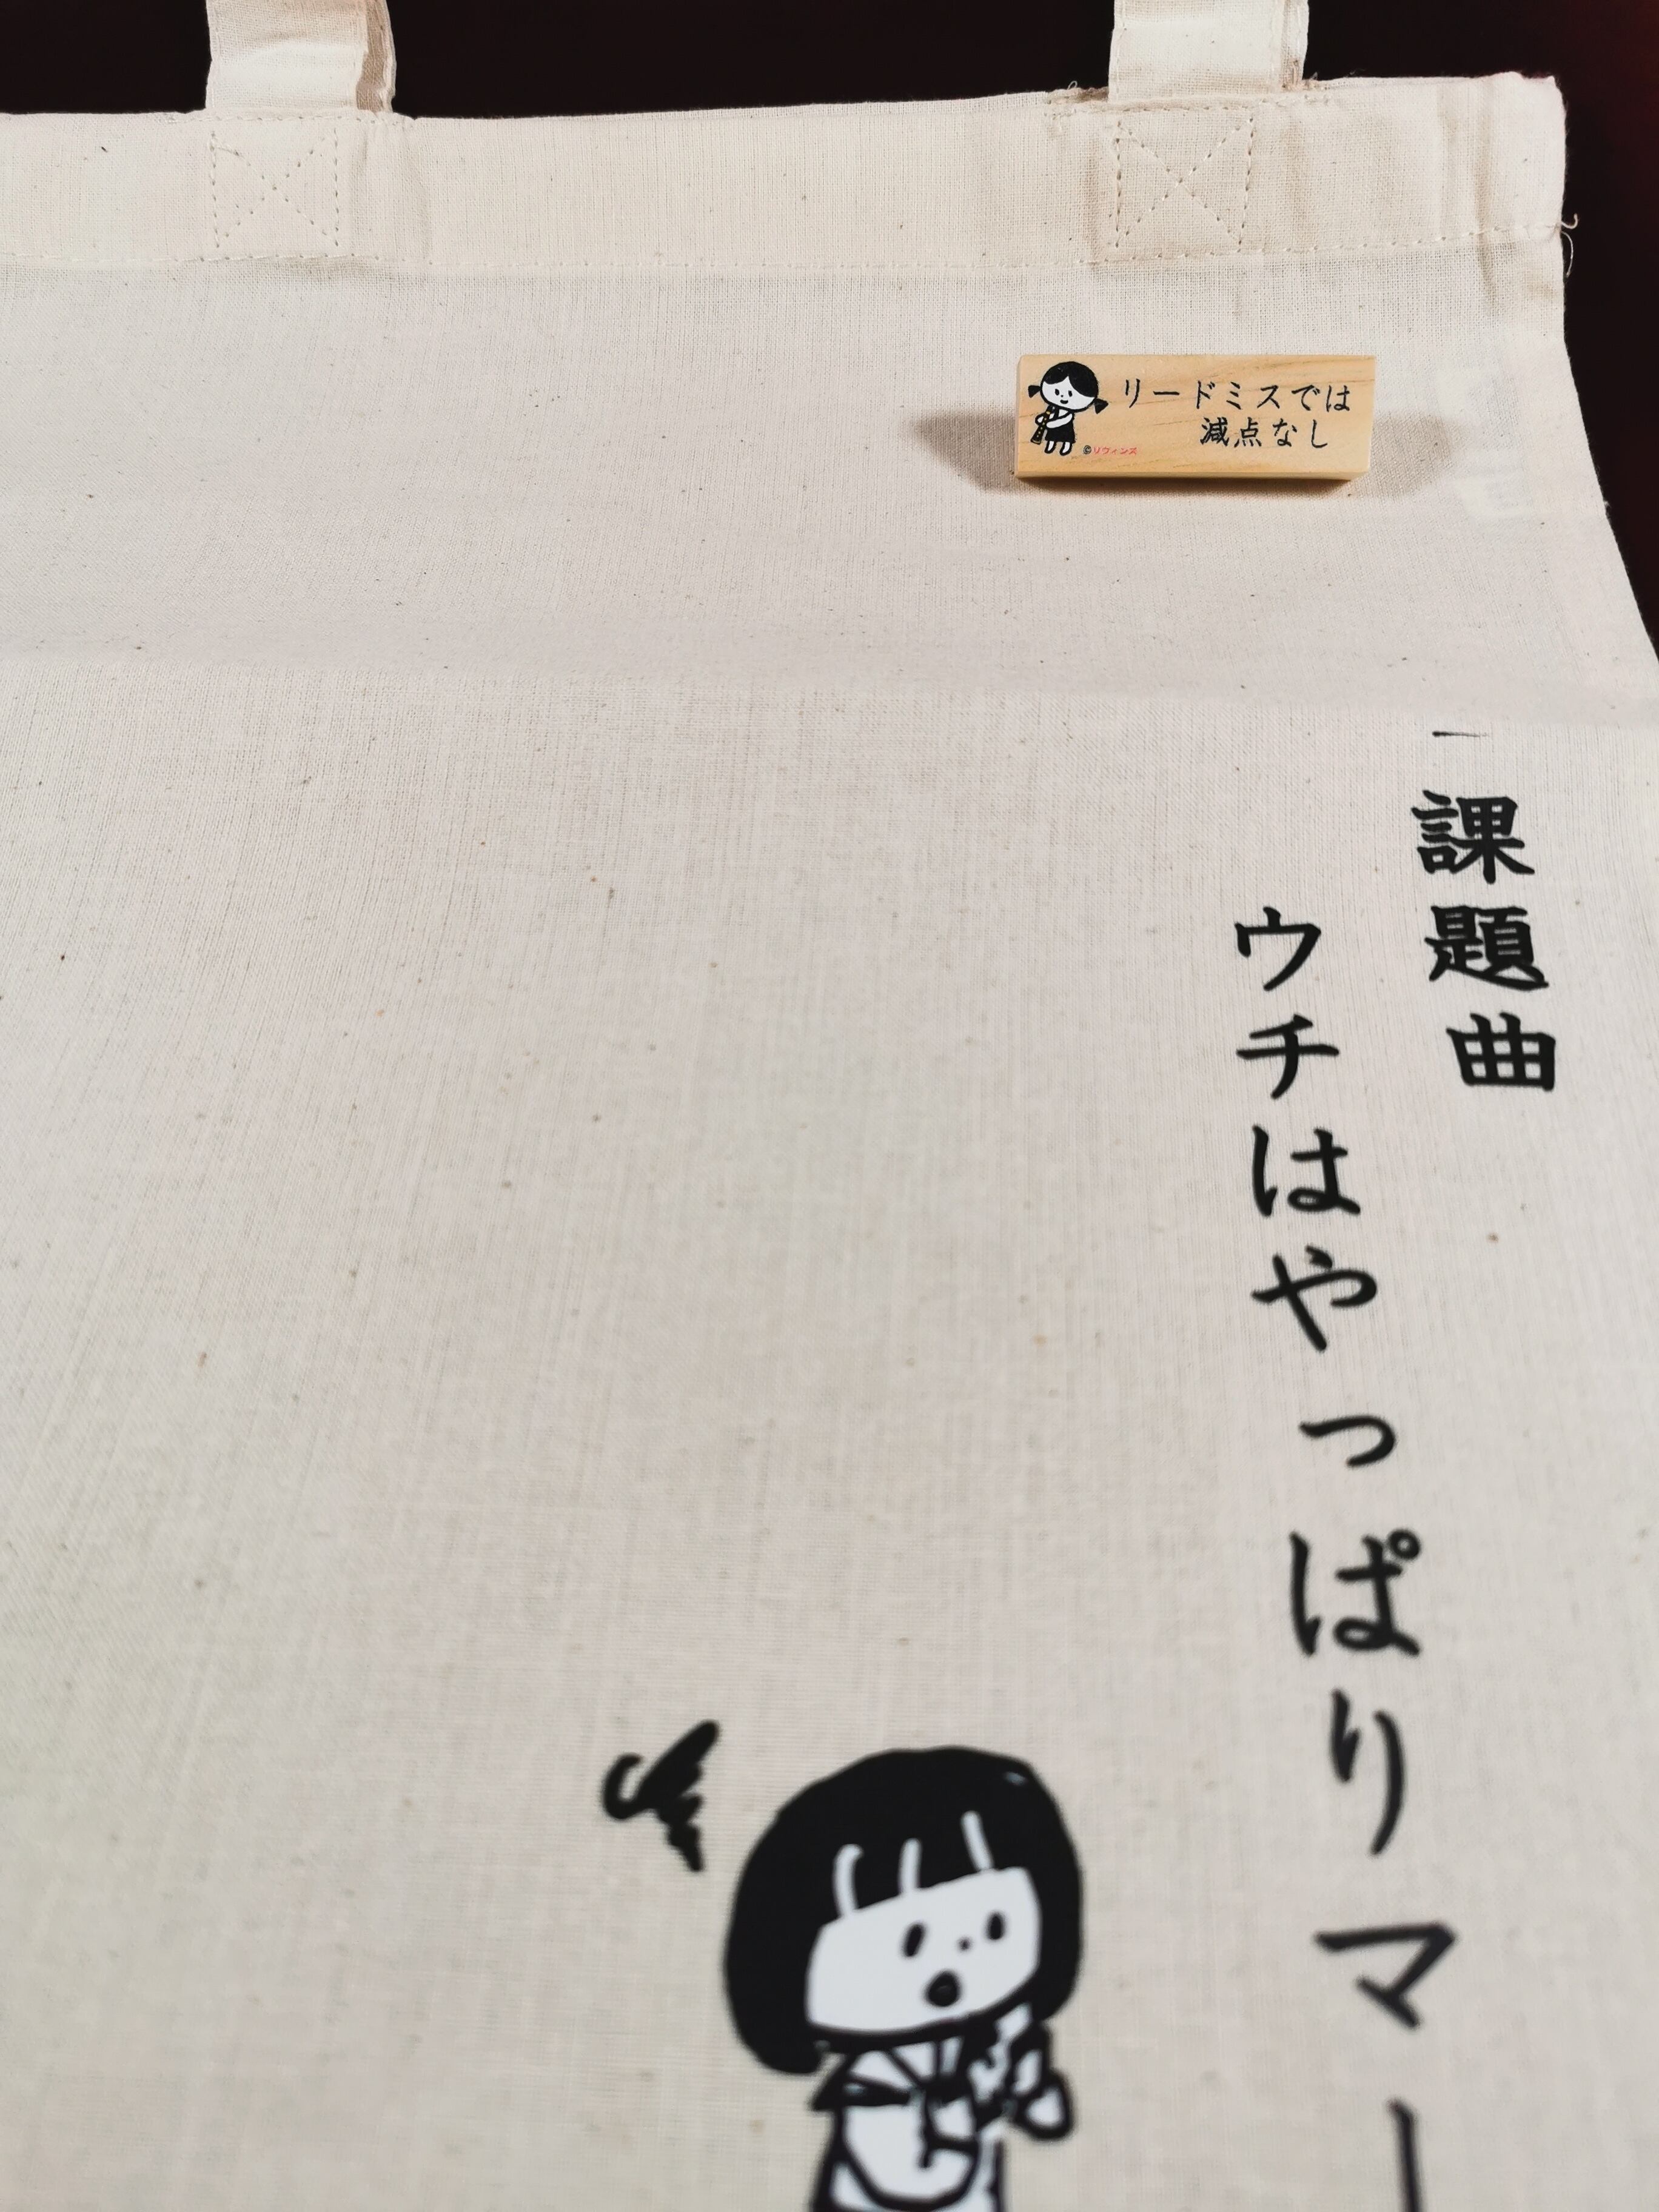 リードミスでは
減点なし
©リヴィンズ
課題曲
ウチはやっぱりマー